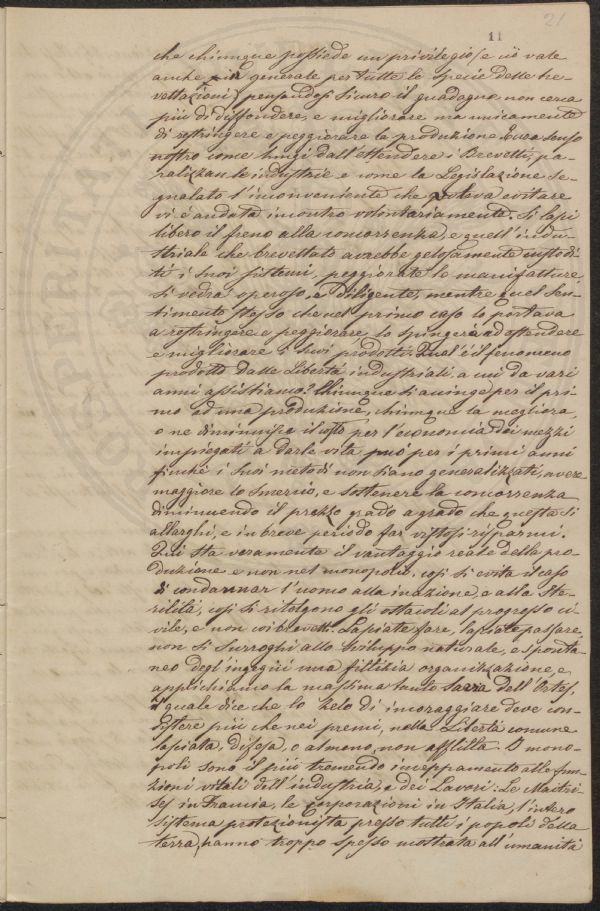 21
11
che chiunque possiede un privilegio (e ciò vale
anche più generale per tutte le specie delle bre-
vettazioni) pensandosi sicuro il guadagno non cerca
più di diffondere, e migliorare ma unicamente
di restringere e peggiorare la produzione. Ecco senso
nostro come lungi dall'attendere i Brevetti, pa-
ralizzan le industrie e come la Legislazione se-
gnalato l'inconveniente che voleva evitare
vi è andata incontro volontariamente. Si lasci
libero il freno alla concorrenza, e quell'indu-
striale che brevettato avrebbe gelosamente custodi-
ti i suoi sistemi, peggiorate le manifatture,
si vedrà operoso, e diligente, mentre quel sen-
timento stesso che nel primo caso lo portava
a restringere e peggiorare, lo spingerà ad estendere
e migliorare i suoi prodotti. Qual'è il fenomeno
prodotto dalle libertà industriali a cui da vari
anni assistiamo? Chiunque si accinge per il pri-
mo ad una produzione, chiunque la migliora,
o ne diminuisce il costo per l'economia dei mezzi
impiegati a darle vita può per i primi anni
finché i suoi metodi non siano generalizzati, avere
maggiore lo smercio, e sostenere la concorrenza
diminuendo il prezzo grado a grado che questa si
allarghi, e in breve periodo far vistosi risparmi.
Qui sta veramente il vantaggio reale della pro-
duzione e non nel monopolio, così si evita il caso
di condannar l'uomo alla inazione, e alla ste-
rilità, così si ritolgono gli ostacoli al progresso ci-
vile, e non coi brevetti. Lasciate fare, lasciate passare,
non si surroghi allo sviluppo naturale, e sponta-
neo degl'ingegni una fittizia organizzazione, e
applichiamo la massima tanto saera dell'Ortes,
il quale dice che lo zelo di incoraggiare deve con-
sistere più che nei premi, nella Libertà comune
lasciata, difesa, o almeno, non afflitta. I mono-
poli sono il più tremendo inceppamento alle fun-
zioni vitali dell'industria e dei Lavori: Le Maitri-
ses in Francia, le Corporazioni in Italia, l'intero
sistema protezionista presso tutti i popoli della
terra, hanno troppo spesso mostrata all'umanità